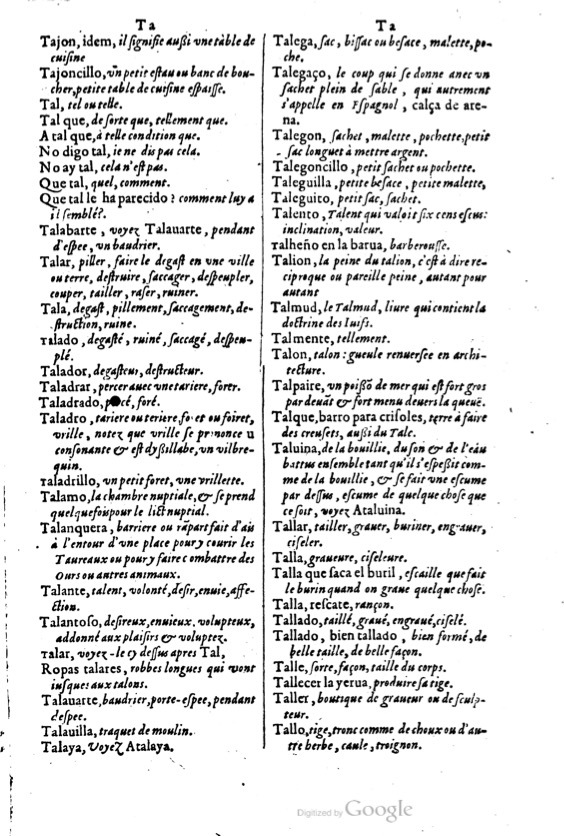 Ta
Tajon, idem, il signifie außi vne table de
cuisine
Tajoncillo, vn petit estau ou banc de bou-
cher, petite table de cuisine espaisse.
Tal, tel ou telle.
Tal que, de sorte que, tellement que.
A tal que, à telle condition que.
No digo tal, ie ne dis pas cela.
No ay tal, cela n'est pas.
Que tal, quel, comment.
Que tal le ha parecido? comment luy a
il semblé?.
Talabarte, voyez Talauarte, pendant
d'espee, vn baudrier.
Talar, piller, faire le degast en vne ville
ou terre, destruire, saccager, despeupler,
couper, tailler, raser, ruiner.
Tala, degast, pillement, saccagement, de-
struction, ruine.
Talado, degasté, ruiné, saccagé, despeu-
plé.
Talador, degasteur, destructeur.
Taladrar, percer auec vne tariere, forer.
Taladrado, p cé, foré.
Taladro, tariere ou teriere, foret ou foiret,
vrille, notez que vrille se prononce u
consonante & est dyssillabe, un vilbre-
quin.
Taladrillo, un petit foret, vne vrillette.
Talamo, la chambre nuptiale, & se prend
quelquefois pour le lict nuptial.
Talanquera, barriere ou rāpart fait d'ais
à l'entour d'vne place pour y courir les
Taureaux ou pour y faire combattre des
Ours ou autres animaux.
Talante, talent, volonté, desir, enuie, affe-
ction.
Talantoso, desireux, enuieux, volupteux,
addonné aux plaisirs & voluptez.
Talar, voyez-le cy dessus apres Tal,
Ropas talares, robbes longues qui vont
iusques aux talons.
Talauarte, baudrier, porte-espee, pendant
d'espee.
Talauilla, traquet de moulin.
Talaya, Voyez Atalaya.
Ta
Talega, sac, bissac ou besace, malette, po-
che.
Talegaço, le coup qui se donne auec vn
sachet plein de sable, qui autrement
s'appelle en Espagnol, calça de are-
na.
Talegon, sachet, malette, pochette, petit
sac longuet à mettre argent.
Talegoncillo, petit sachet ou pochette.
Taleguilla, petite besace, petite malette,
Taleguito, petit sac, sachet.
Talento, Talent qui valoit six cens escus:
inclination, valeur.
Talheño en la barua, barberousse.
Talion, la peine du talion, c'est à dire re-
ciproque ou pareille peine, autant pour
autant
Talmud, le Talmud, liure qui contient la
doctrine des Iuifs.
Talmente, tellement.
Talon, talon: gueule renuersee en archi-
tecture.
Talpaire, vn poißō de mer qui est fort gros
par deuāt & fort menu deuers la queuë.
Talque, barro para crisoles, terre à faire
des creusets, außi du Talc.
Taluina, de la bouillie, du son & de l'eau
battus ensemble tant qu'il s'espeßit com-
me de la bouillie, & se fait vne escume
par dessus, escume de quelque chose que
ce soit, voyez Ataluina.
Tallar, tailler, grauer, buriner, engrauer,
ciseler.
Talla, graueure, ciseleure.
Talla que saca el buril, escaille que fait
le burin quand on graue quelque chose.
Talla, rescate, rançon.
Tallado, taillé, graué, engraué, ciselé.
Tallado, bien tallado, bien formé, de
belle taille, de belle façon.
Talle, sorte, façon, taille du corps.
Tallecer la yerua, produire sa tige.
Taller, boutique de graueur ou de sculp-
teur.
Tallo, tige, tronc comme de choux ou d'au-
tre herbe, caule, troignon.
Digitized by Google